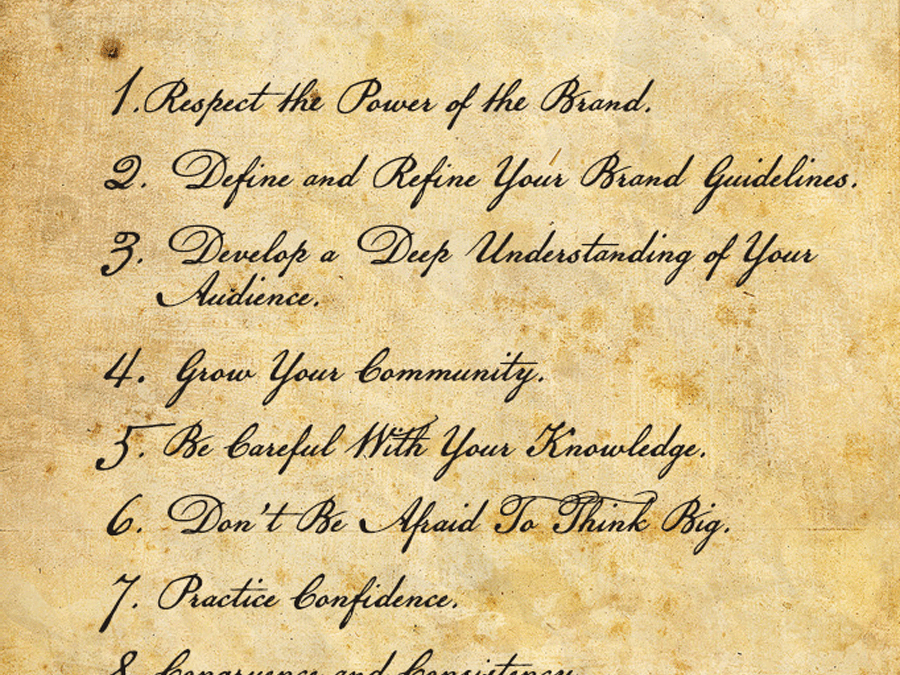 1. Respect the Power of the Brand.
2. Define and Refine Your Brand Guidelines.
3. Develop a Deep Understanding of Your
Audience.
4. Grow Your Community.
5. Be Careful With Your Knowledge.
6. Don't Be Afraid To Think Big.
7. Practice Confidence.
8. Congruence and Consistency